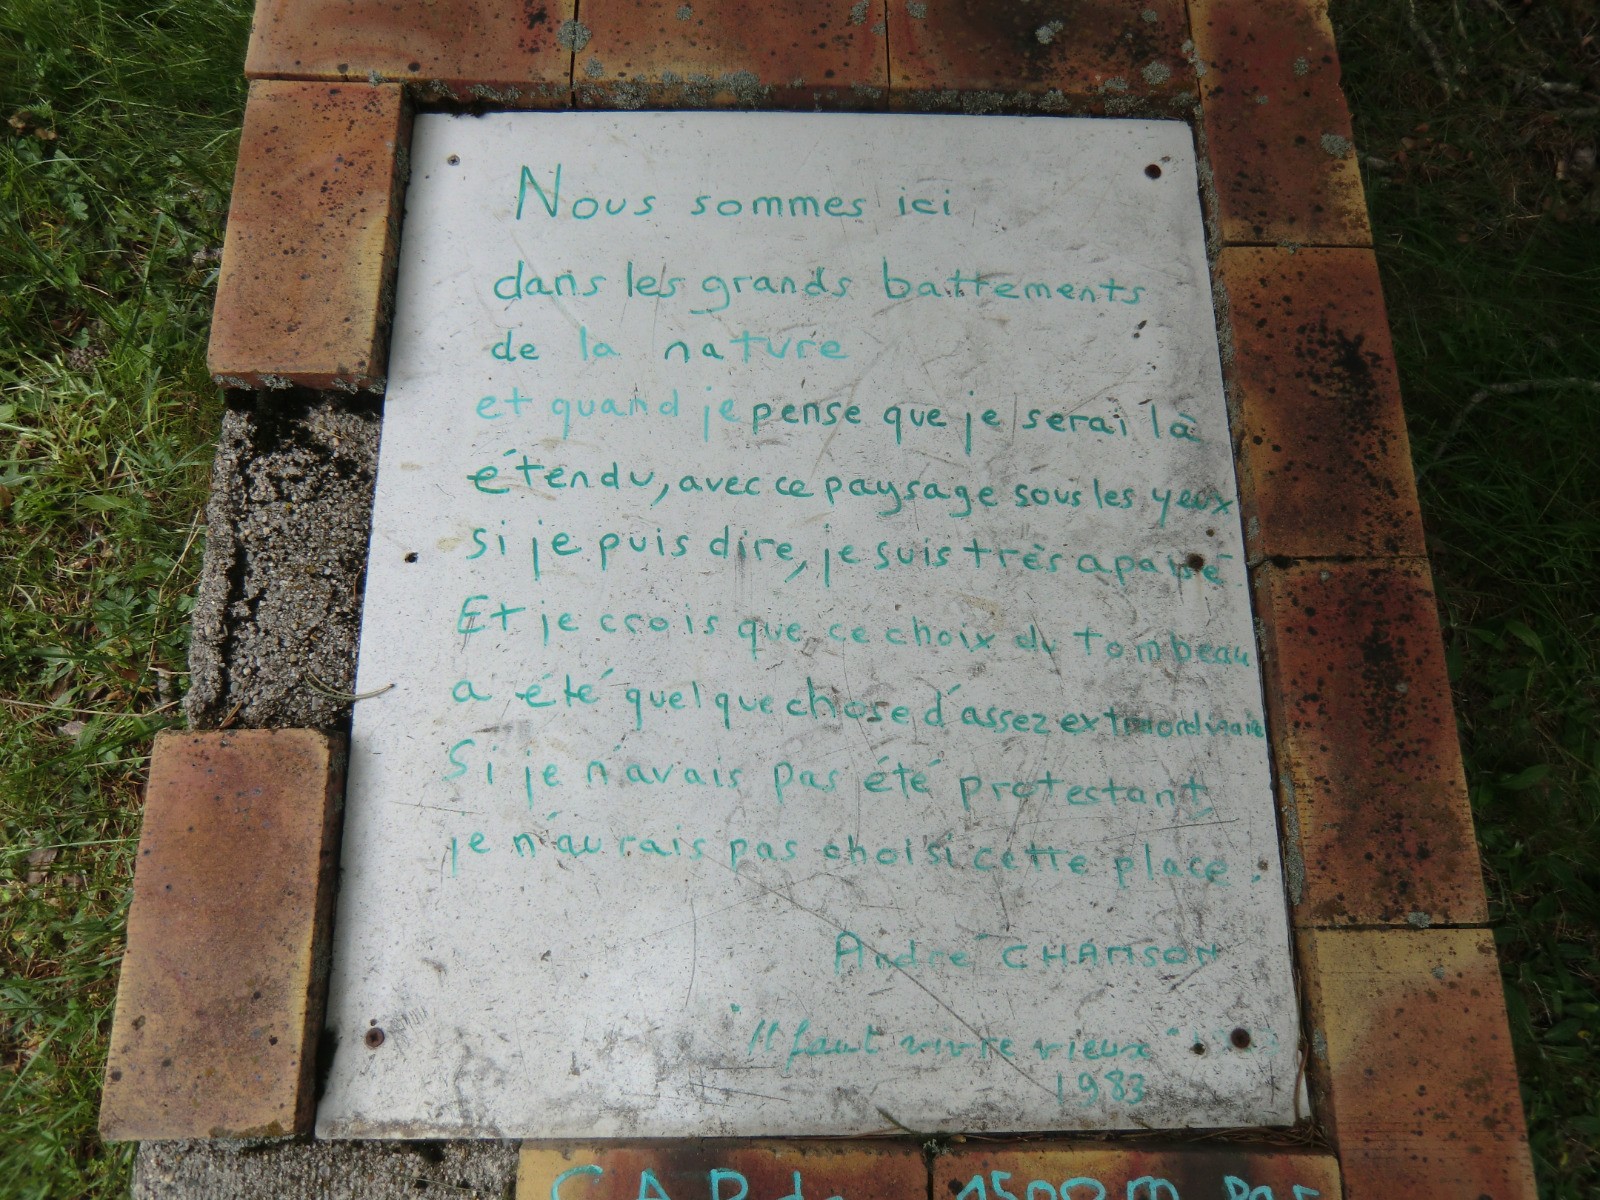 Nous sommes ici
dans les grands battements
de la nature
et quand je pense que je serai là
étendu, avec ce paysage sous les yeux
si je puis dire, je suis très apaisé.
Et je crois que ce choix du tombeau
a été quelque chose d'assez extraordinaire
Si je n'avais pas été protestant,
je n'aurais pas choisi cette place.
André CHAMSON
"Il faut vivre vieux"
1983
1500m par